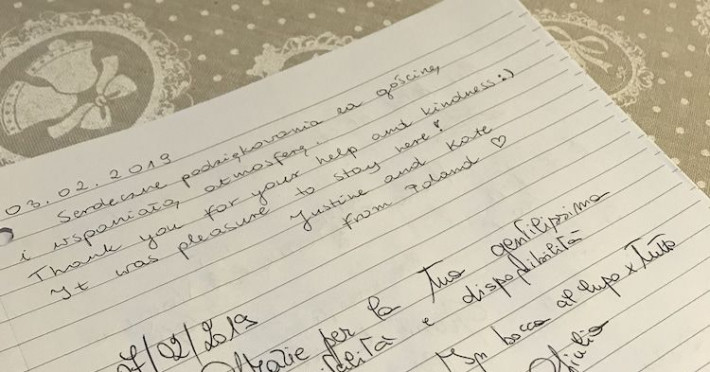 03.02.2019
Serdeczne podziękowania za gościnę,
i wspaniałą atmosferę.
Thank you for your help and kindness :)
It was pleasure to stay here!
Justine and Kate
from Poland ♡
7/02/2019
Grazie per la tua gentilissima
e disponibilità
In bocca al lupo x tutto
Giulia